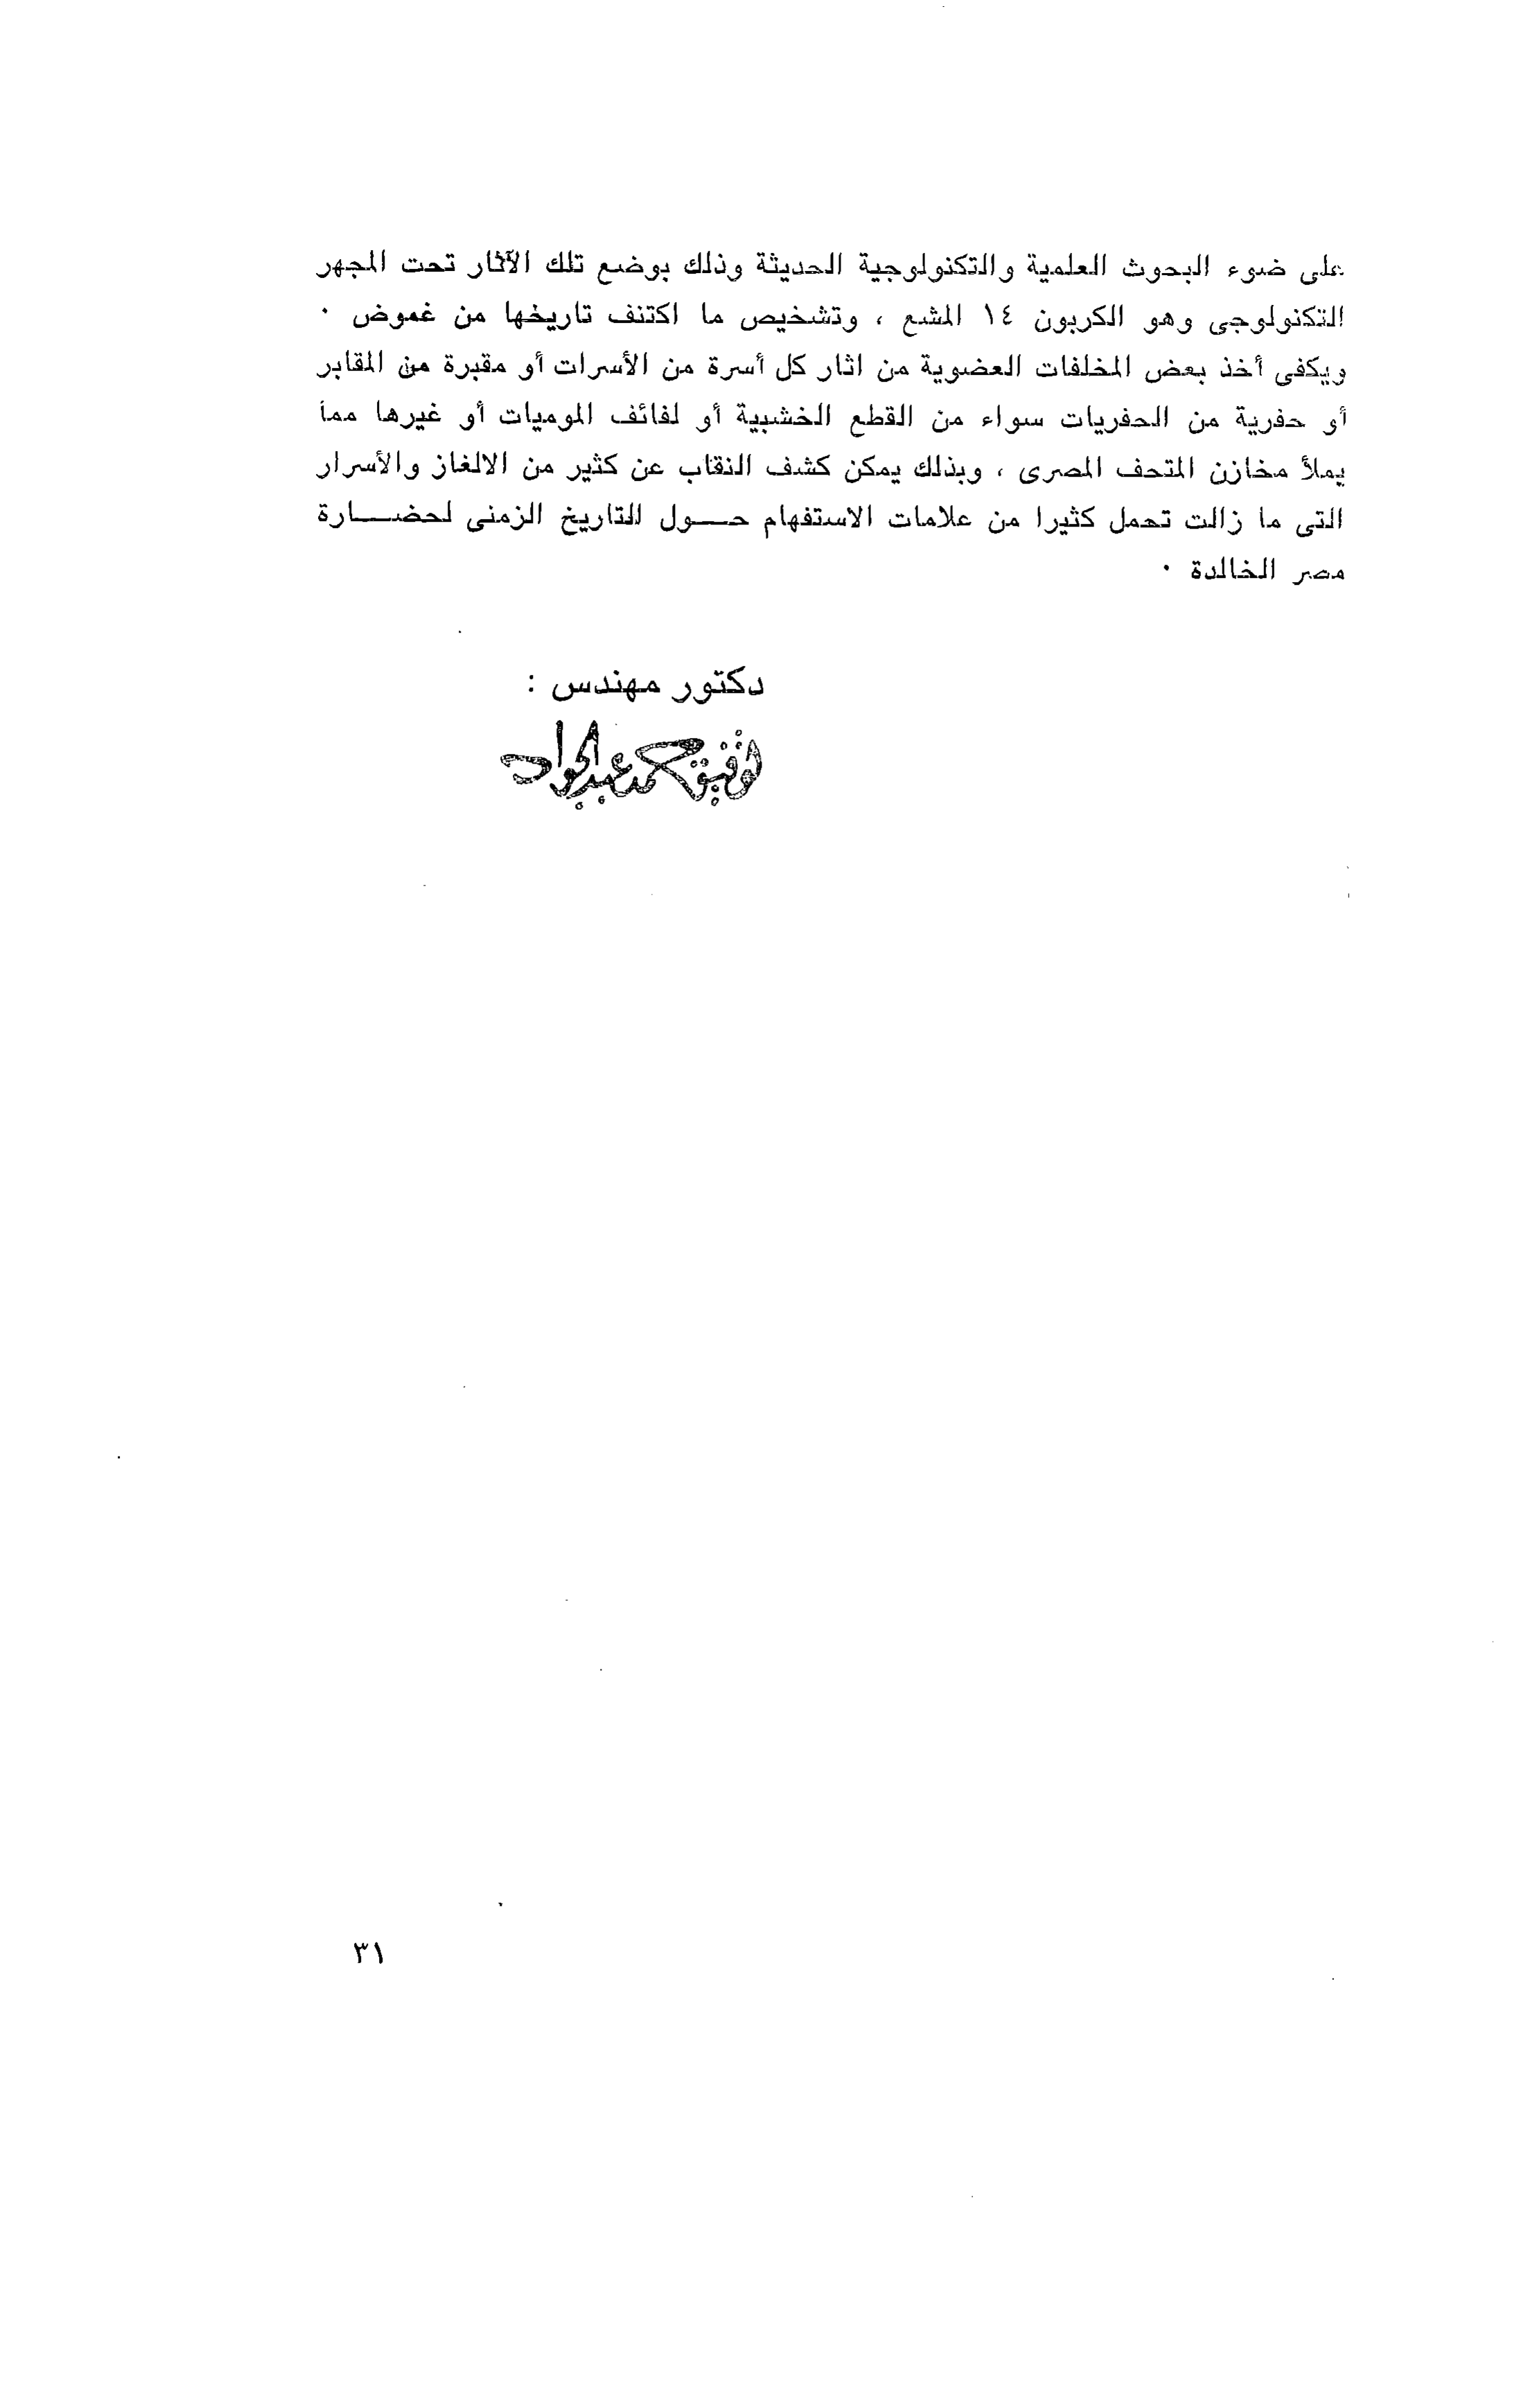 على ضوء البحوث العلمية والتكنولوجية الحديثة وذلك بوضع تلك الآثار تحت المجهر
التكنولوجى وهو الكربون ١٤ المشع ، وتشخيص ما اكتنف تاريخها من غموض ٠
ويكفى أخذ بعض المخلفات العضوية من اثار كل أسرة من الأسرات أو مقبرة من المقابر
أو حفرية من الحفريات سواء من القطع الخشبية أو لفائف الموميات أو غيرها مما
يملأ مخازن المتحف المصرى ، وبذلك يمكن كشف النقاب عن كثير من الالغاز والأسرار
التى ما زالت تحمل كثيرا من علامات الاستفهام حـــول التاريخ الزمنى لحضـــارة
مصر الخالدة ٠
دكتور مهندس :
توفيق محمد عبد الجواد
٣١